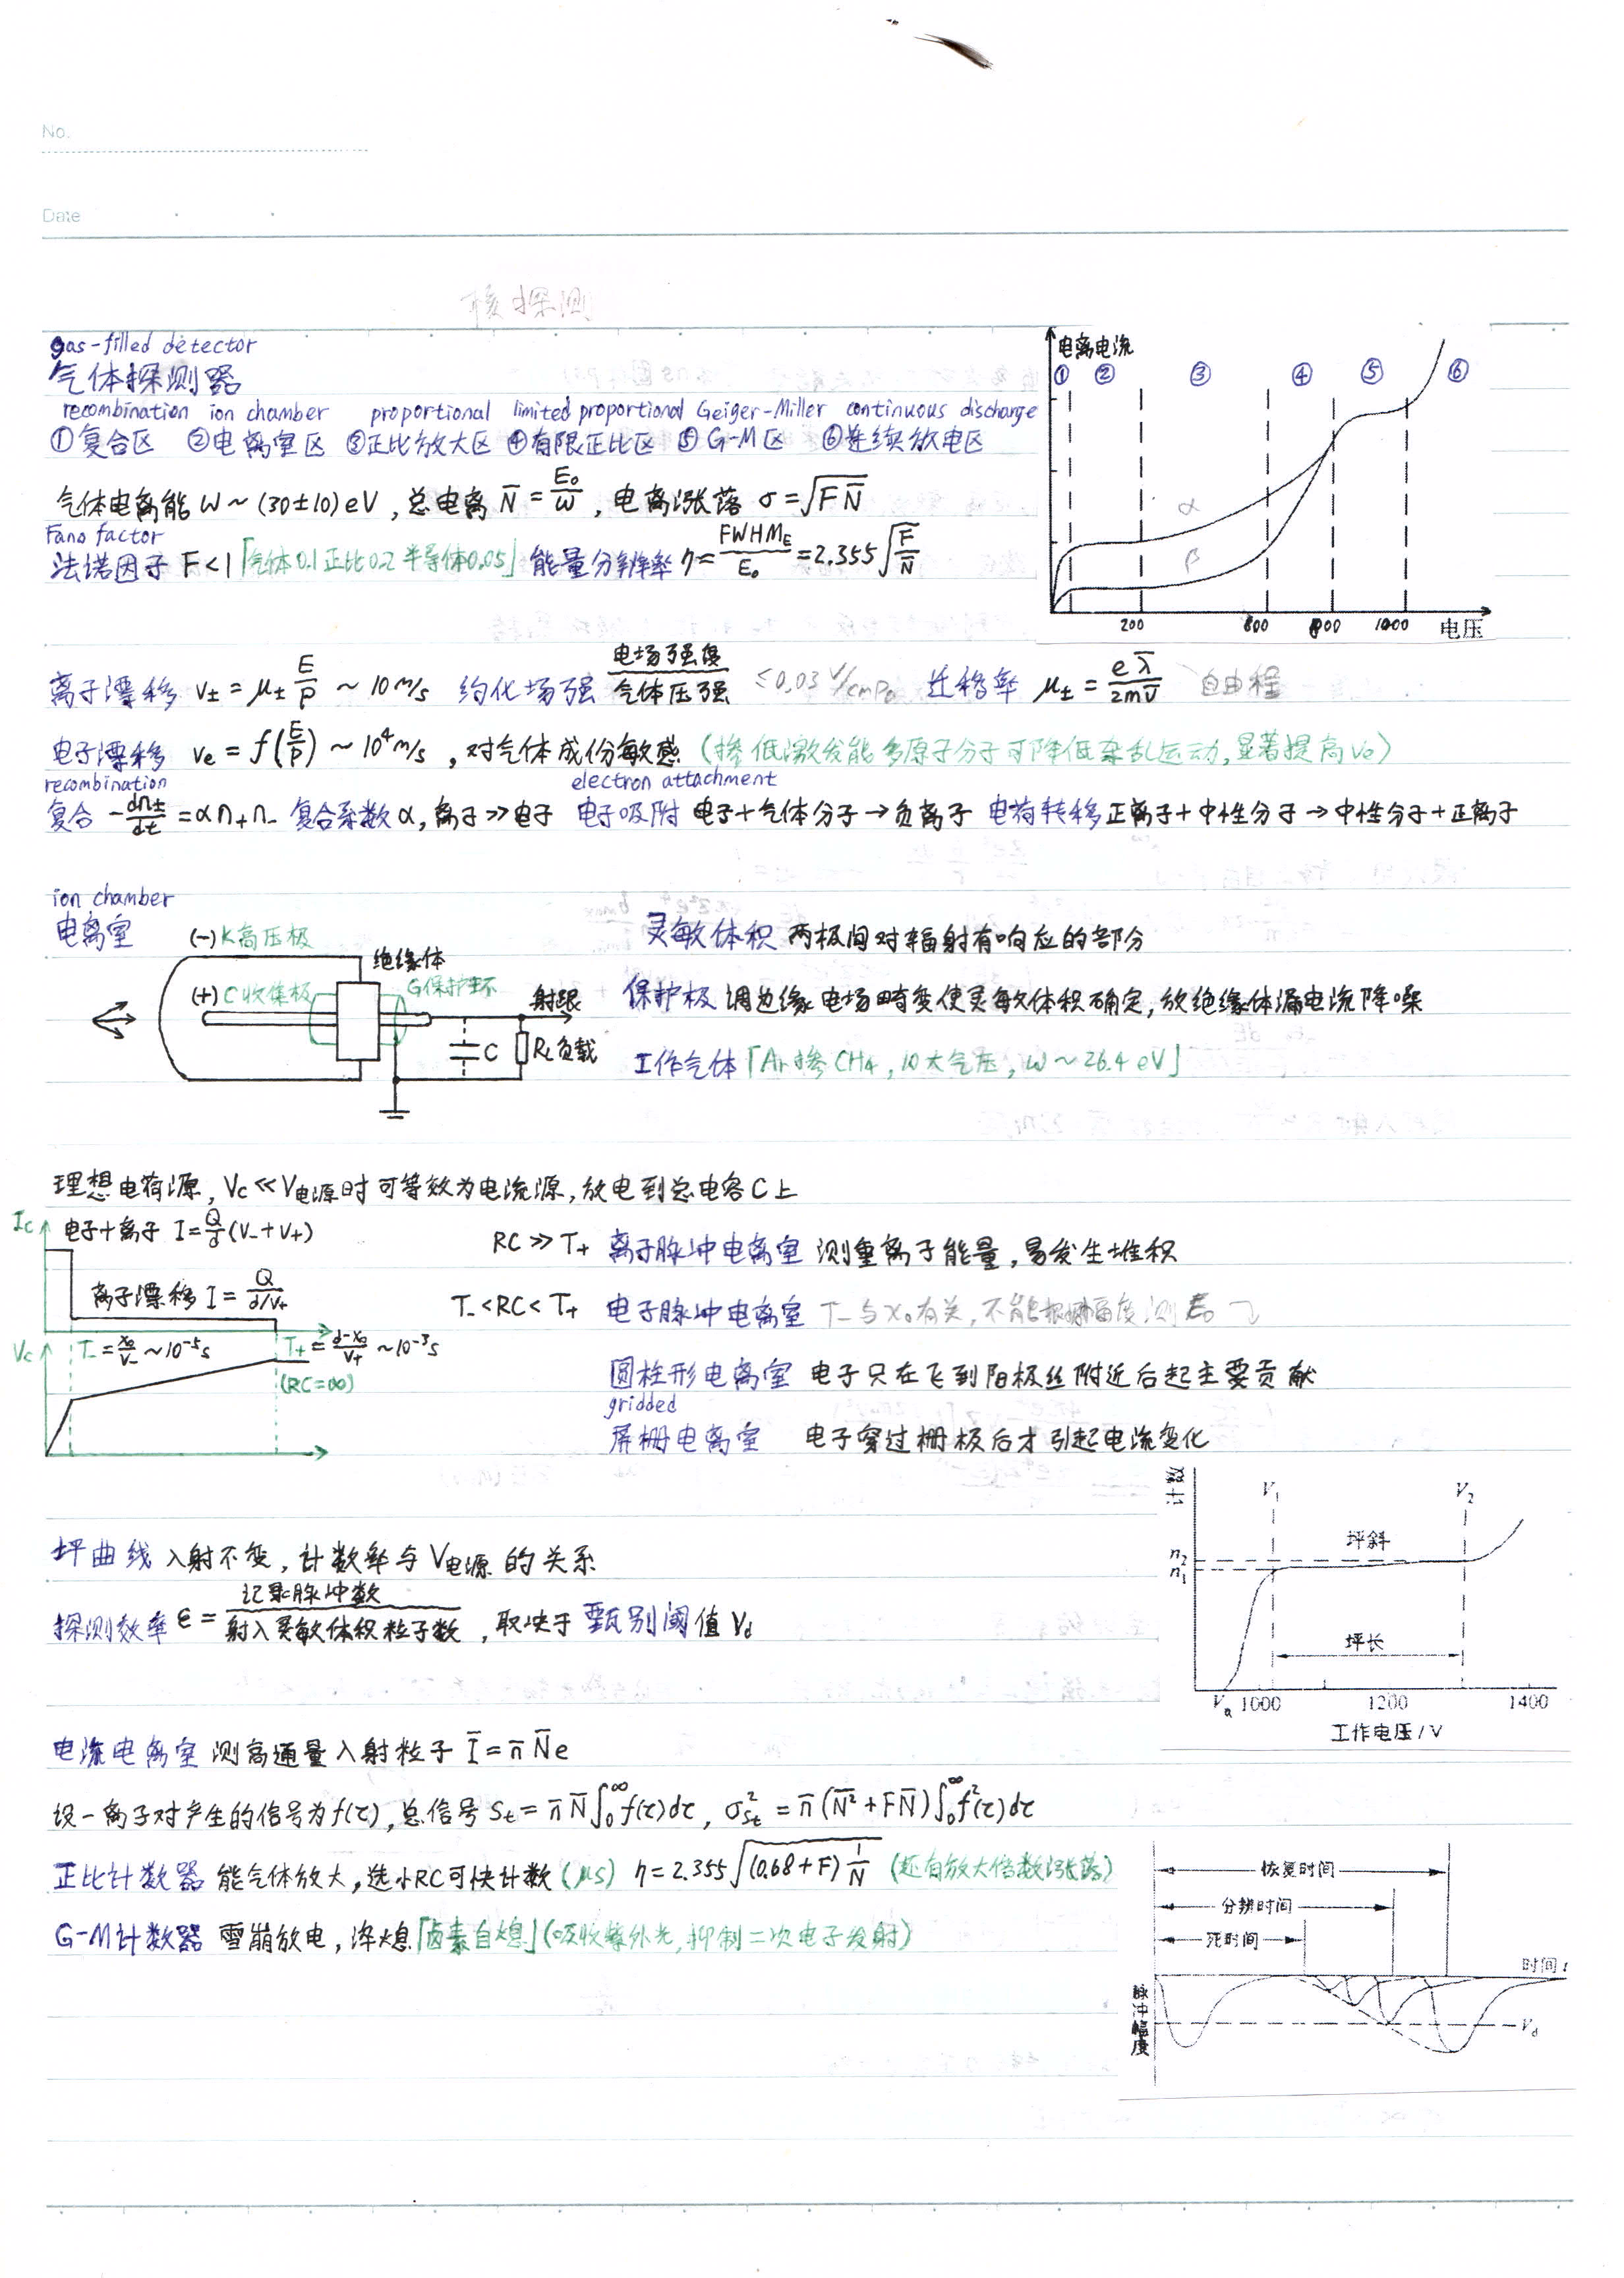 No.
Date
核探测
gas-filled detector
气体探测器
recombination ion chamber proportional limited proportional Geiger-Miller continuous discharge
①复合区 ②电离室区 ③正比放大区 ④有限正比区 ⑤G-M区 ⑥连续放电区
气体电离能 W~(30±10)eV, 总电离 N̄=E₀/w, 电离涨落 σ=√(FN̄)
Fano factor
法诺因子 F<1「气体0.1 正比0.2 半导体0.05」 能量分辨率 η=FWHM_E/E₀=2.355√(F/N̄)
电离电流
① ② ③ ④ ⑤ ⑥
α
β
200 600 800 1000 电压
离子漂移 v±=μ± E/P ~10m/s 约化场强 电场强度/气体压强 ≤0.03 V/cmPa 迁移率 μ±=eλ̄/2mv̄ 自由程
电子漂移 ve=f(E/P)~10⁴m/s, 对气体成份敏感 (掺低激发能多原子分子可降低杂乱运动,显著提高ve)
recombination electron attachment
复合 -dn±/dt=αn₊n₋ 复合系数α, 离子≫电子 电子吸附 电子+气体分子→负离子 电荷转移 正离子+中性分子→中性分子+正离子
ion chamber
电离室
(-)K高压极
绝缘体
(+)C收集极
G保护环
射跟
C
R_L负载
灵敏体积 两极间对辐射有响应的部分
保护极 调边缘电场畸变使灵敏体积确定, 放绝缘体漏电流降噪
工作气体「Ar掺CH₄, 10大气压, W~26.4 eV」
理想电荷源, Vc≪V电源时可等效为电流源, 放电到总电容C上
Ic 电子+离子 I=Q/d(V₋+V₊)
离子漂移 I=Q/(d/v₊)
Vc T₋=x₀/V₋~10⁻⁵s T₊=(d-x₀)/V₊~10⁻³s
(RC=∞)
RC≫T₊ 离子脉冲电离室 测重离子能量, 易发生堆积
T₋<RC<T₊ 电子脉冲电离室 T₋与x₀有关, 不能根据幅度测
圆柱形电离室 电子只在飞到阳极丝附近后起主要贡献
gridded
屏栅电离室 电子穿过栅极后才引起电流变化
坪曲线 入射不变, 计数率与V电源的关系
探测效率 ε=记录脉冲数/射入灵敏体积粒子数, 取决于 甄别阈值 V_d
计数
V₁ V₂
n₂
n₁
坪斜
坪长
Va 1000 1200 1400
工作电压/V
电流电离室 测高通量入射粒子 Ī=n̄N̄e
设一离子对产生的信号为f(τ), 总信号 St=n̄N̄∫₀^∞f(τ)dτ, σ²_St=n̄(N̄²+FN̄)∫₀^∞f²(τ)dτ
正比计数器 能气体放大, 选小RC可快计数(μs) η=2.355√((0.68+F)1/N̄) (还有放大倍数涨落)
G-M计数器 雪崩放电, 淬熄「卤素自熄」(吸收紫外光,抑制二次电子发射)
恢复时间
分辨时间
死时间
时间 t
脉冲幅度
V_d